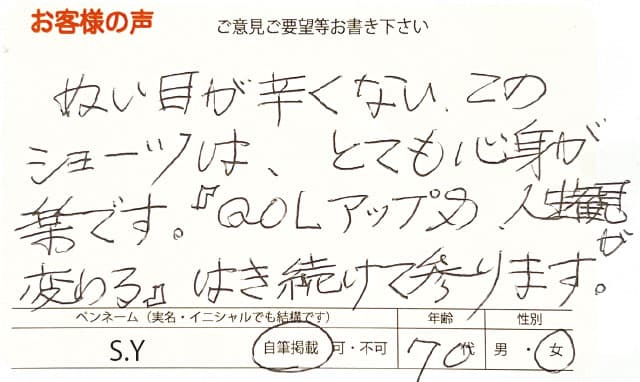 お客様の声 ご意見ご要望等お書き下さい
ぬい目が辛くない、この
ショーツは、とても心身が
楽です。『QOLアップの、人生観が
変わる』はき続けて参ります。
ペンネーム（実名・イニシャルでも結構です） 年齢 性別
S.Y 自筆掲載 可・不可 70代 男・女